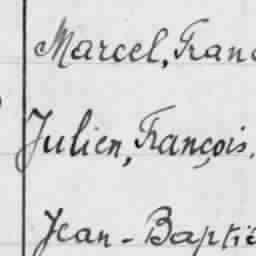 Marcel, Franc
Julien, François.
Jean-Baptis